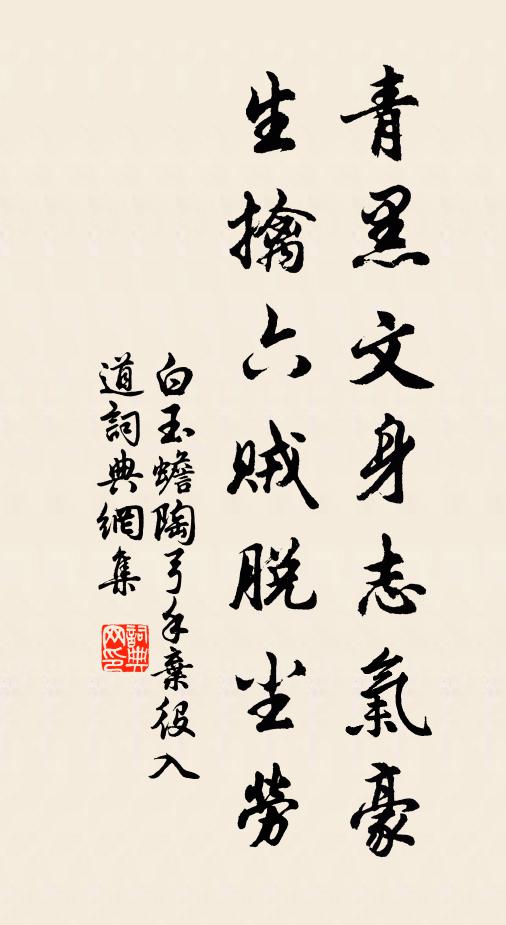 青黑文身志氣豪
生擒六賊脫尘勞
白玉蟾陶弓手棄役入
道詞典網集
詞典
网印